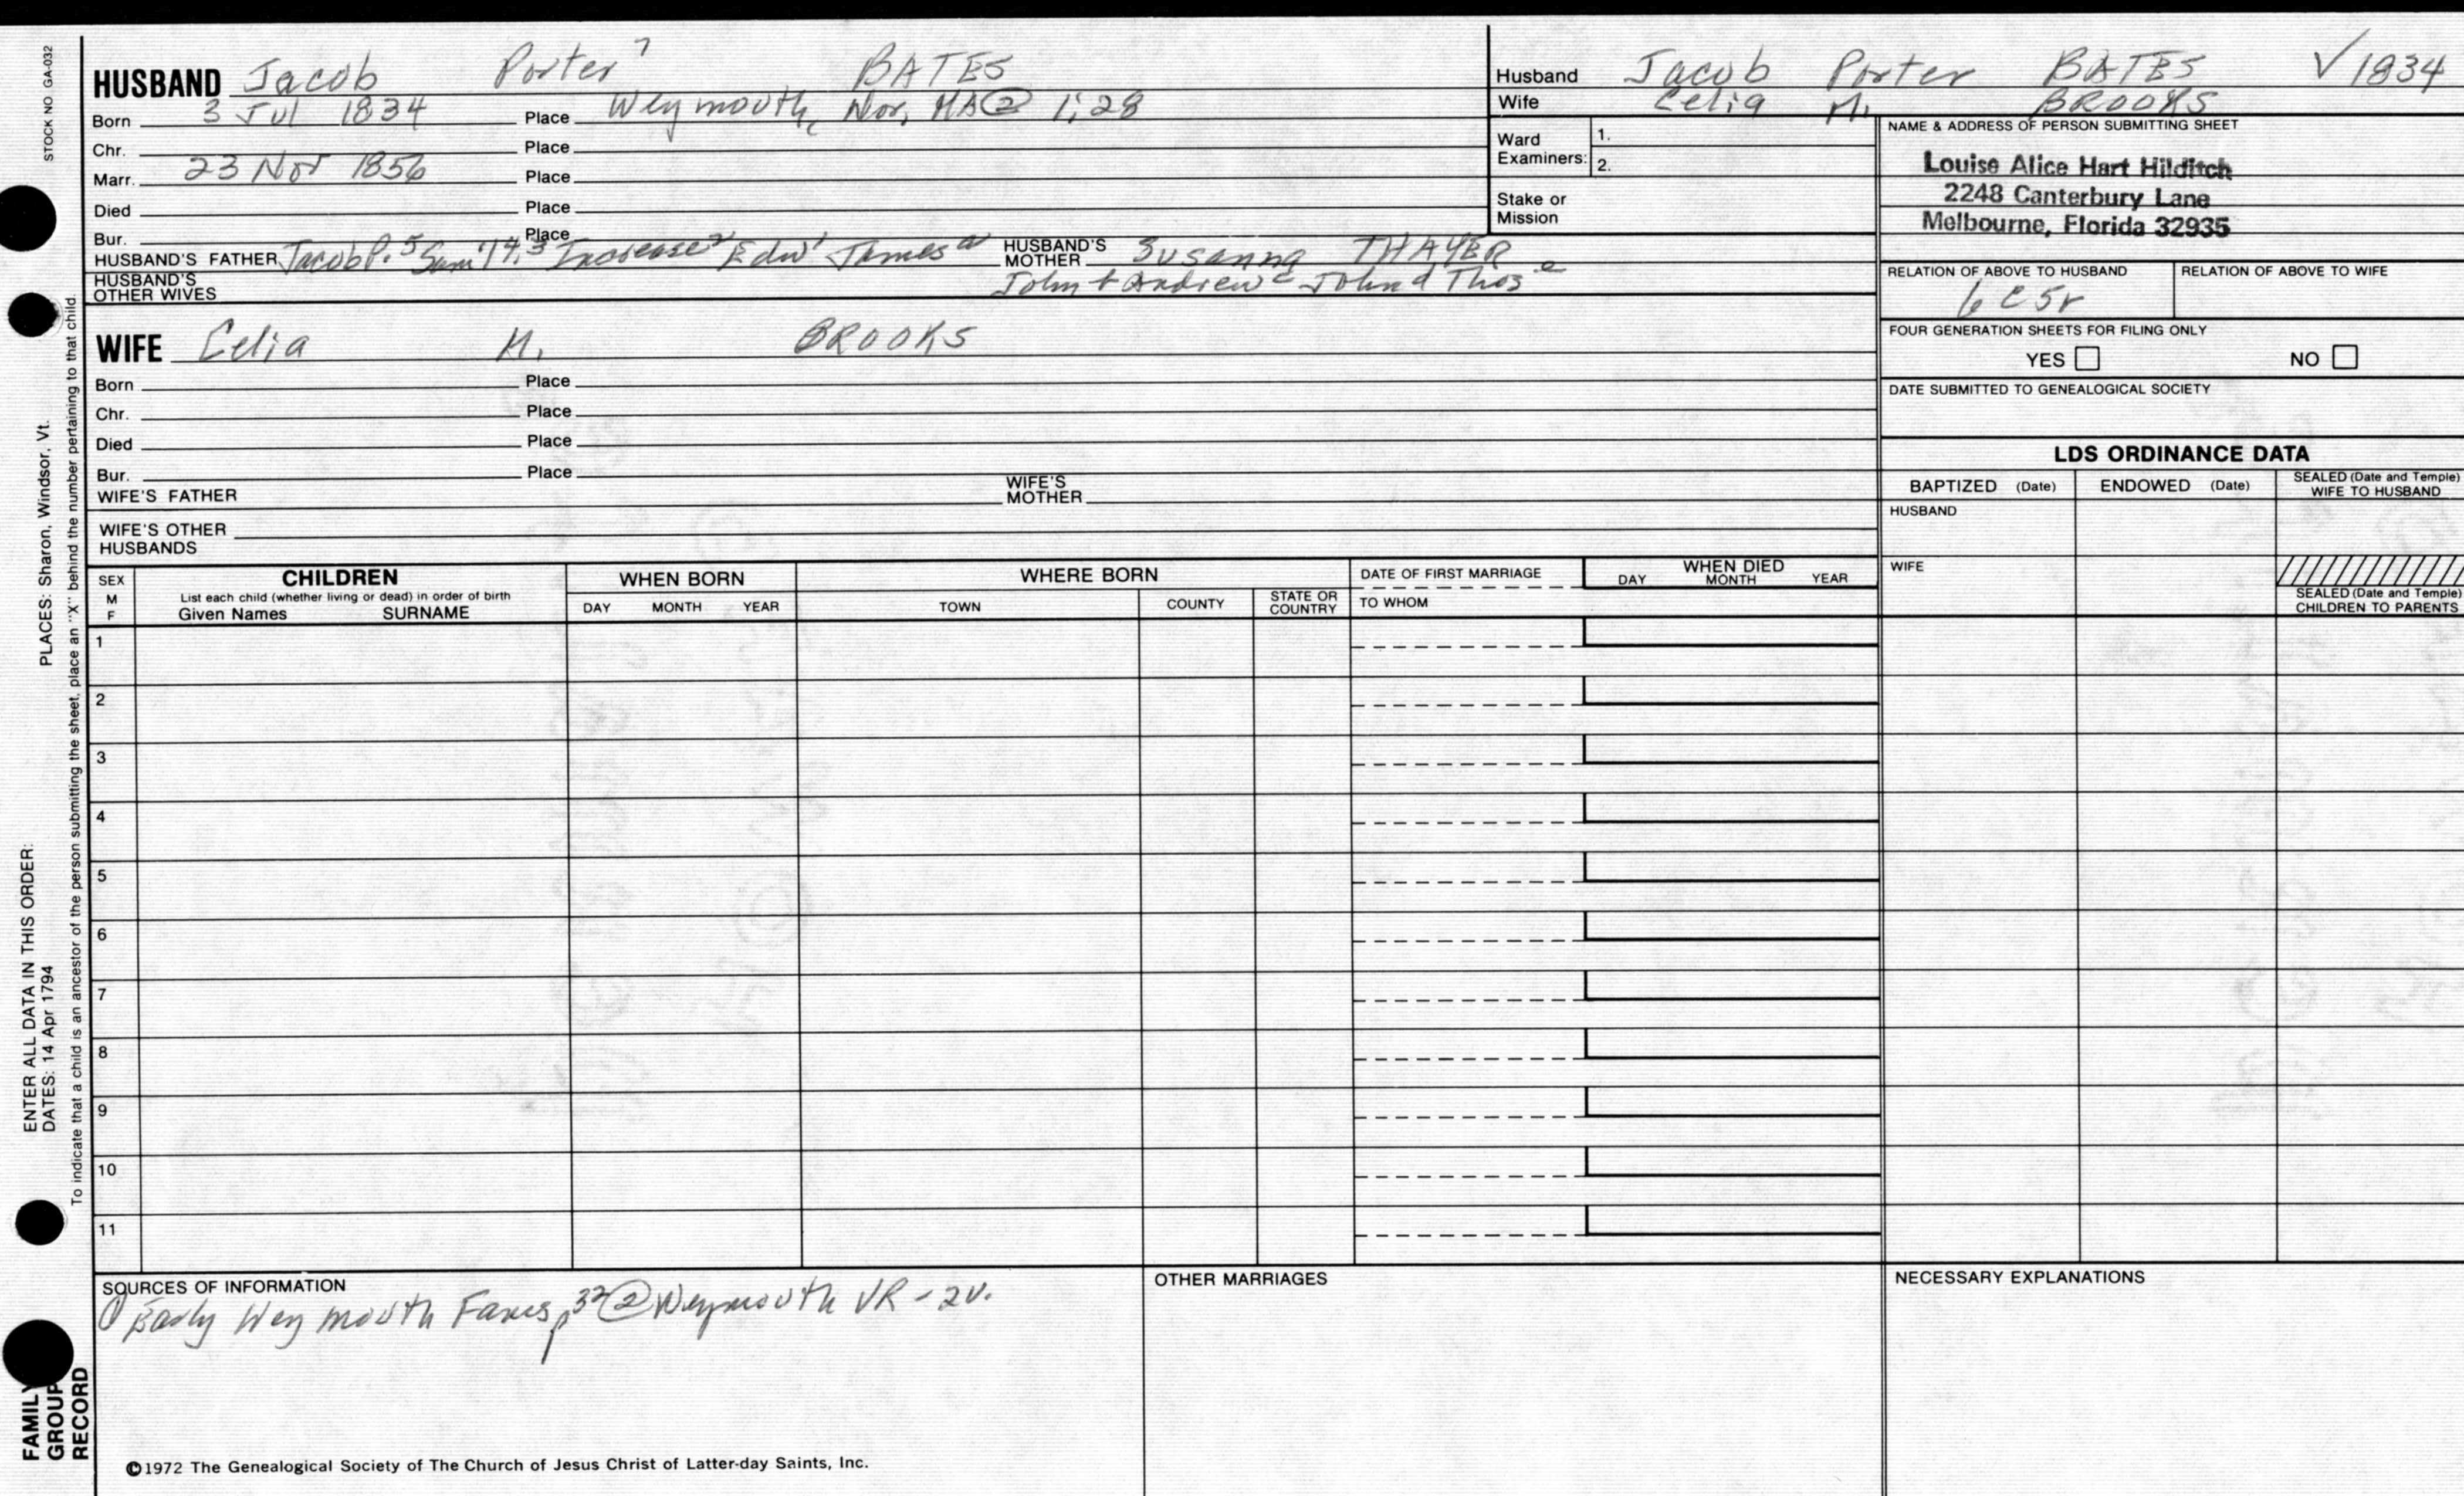 STOCK NO GA-032
HUSBAND Jacob Porter 7 BATES
Born 3 Jul 1834 Place Weymouth, Nor, MA ② 1:28
Chr. Place
Marr. 23 Nov 1856 Place
Died Place
Bur. Place
HUSBAND'S FATHER Jacob P. 5 Increase 2 Edw 1 James a HUSBAND'S MOTHER Susanna THAYER
HUSBAND'S OTHER WIVES John + Andrew c John d Thos e
WIFE Celia M. BROOKS
Born Place
Chr. Place
Died Place
Bur. Place
WIFE'S FATHER WIFE'S MOTHER
WIFE'S OTHER HUSBANDS
Husband Jacob Porter BATES ✓1834
Wife Celia M. BROOKS
Ward Examiners: 1.
2.
Stake or Mission
NAME & ADDRESS OF PERSON SUBMITTING SHEET
Louise Alice Hart Hilditch
2248 Canterbury Lane
Melbourne, Florida 32935
RELATION OF ABOVE TO HUSBAND RELATION OF ABOVE TO WIFE
6C5r
FOUR GENERATION SHEETS FOR FILING ONLY
YES NO
DATE SUBMITTED TO GENEALOGICAL SOCIETY
LDS ORDINANCE DATA
BAPTIZED (Date) ENDOWED (Date) SEALED (Date and Temple) WIFE TO HUSBAND
HUSBAND
WIFE
SEALED (Date and Temple) CHILDREN TO PARENTS
SEX M F
CHILDREN
List each child (whether living or dead) in order of birth
Given Names SURNAME
WHEN BORN
DAY MONTH YEAR
WHERE BORN
TOWN COUNTY STATE OR COUNTRY
DATE OF FIRST MARRIAGE
TO WHOM
WHEN DIED
DAY MONTH YEAR
1
2
3
4
5
6
7
8
9
10
11
SOURCES OF INFORMATION
① Early Weymouth Fams, p 32 ② Weymouth VR - 2v.
OTHER MARRIAGES
NECESSARY EXPLANATIONS
©1972 The Genealogical Society of The Church of Jesus Christ of Latter-day Saints, Inc.
ENTER ALL DATA IN THIS ORDER:
DATES: 14 Apr 1794 PLACES: Sharon, Windsor, Vt.
To indicate that a child is an ancestor of the person submitting the sheet, place an "X" behind the number pertaining to that child.
FAMILY
GROUP
RECORD